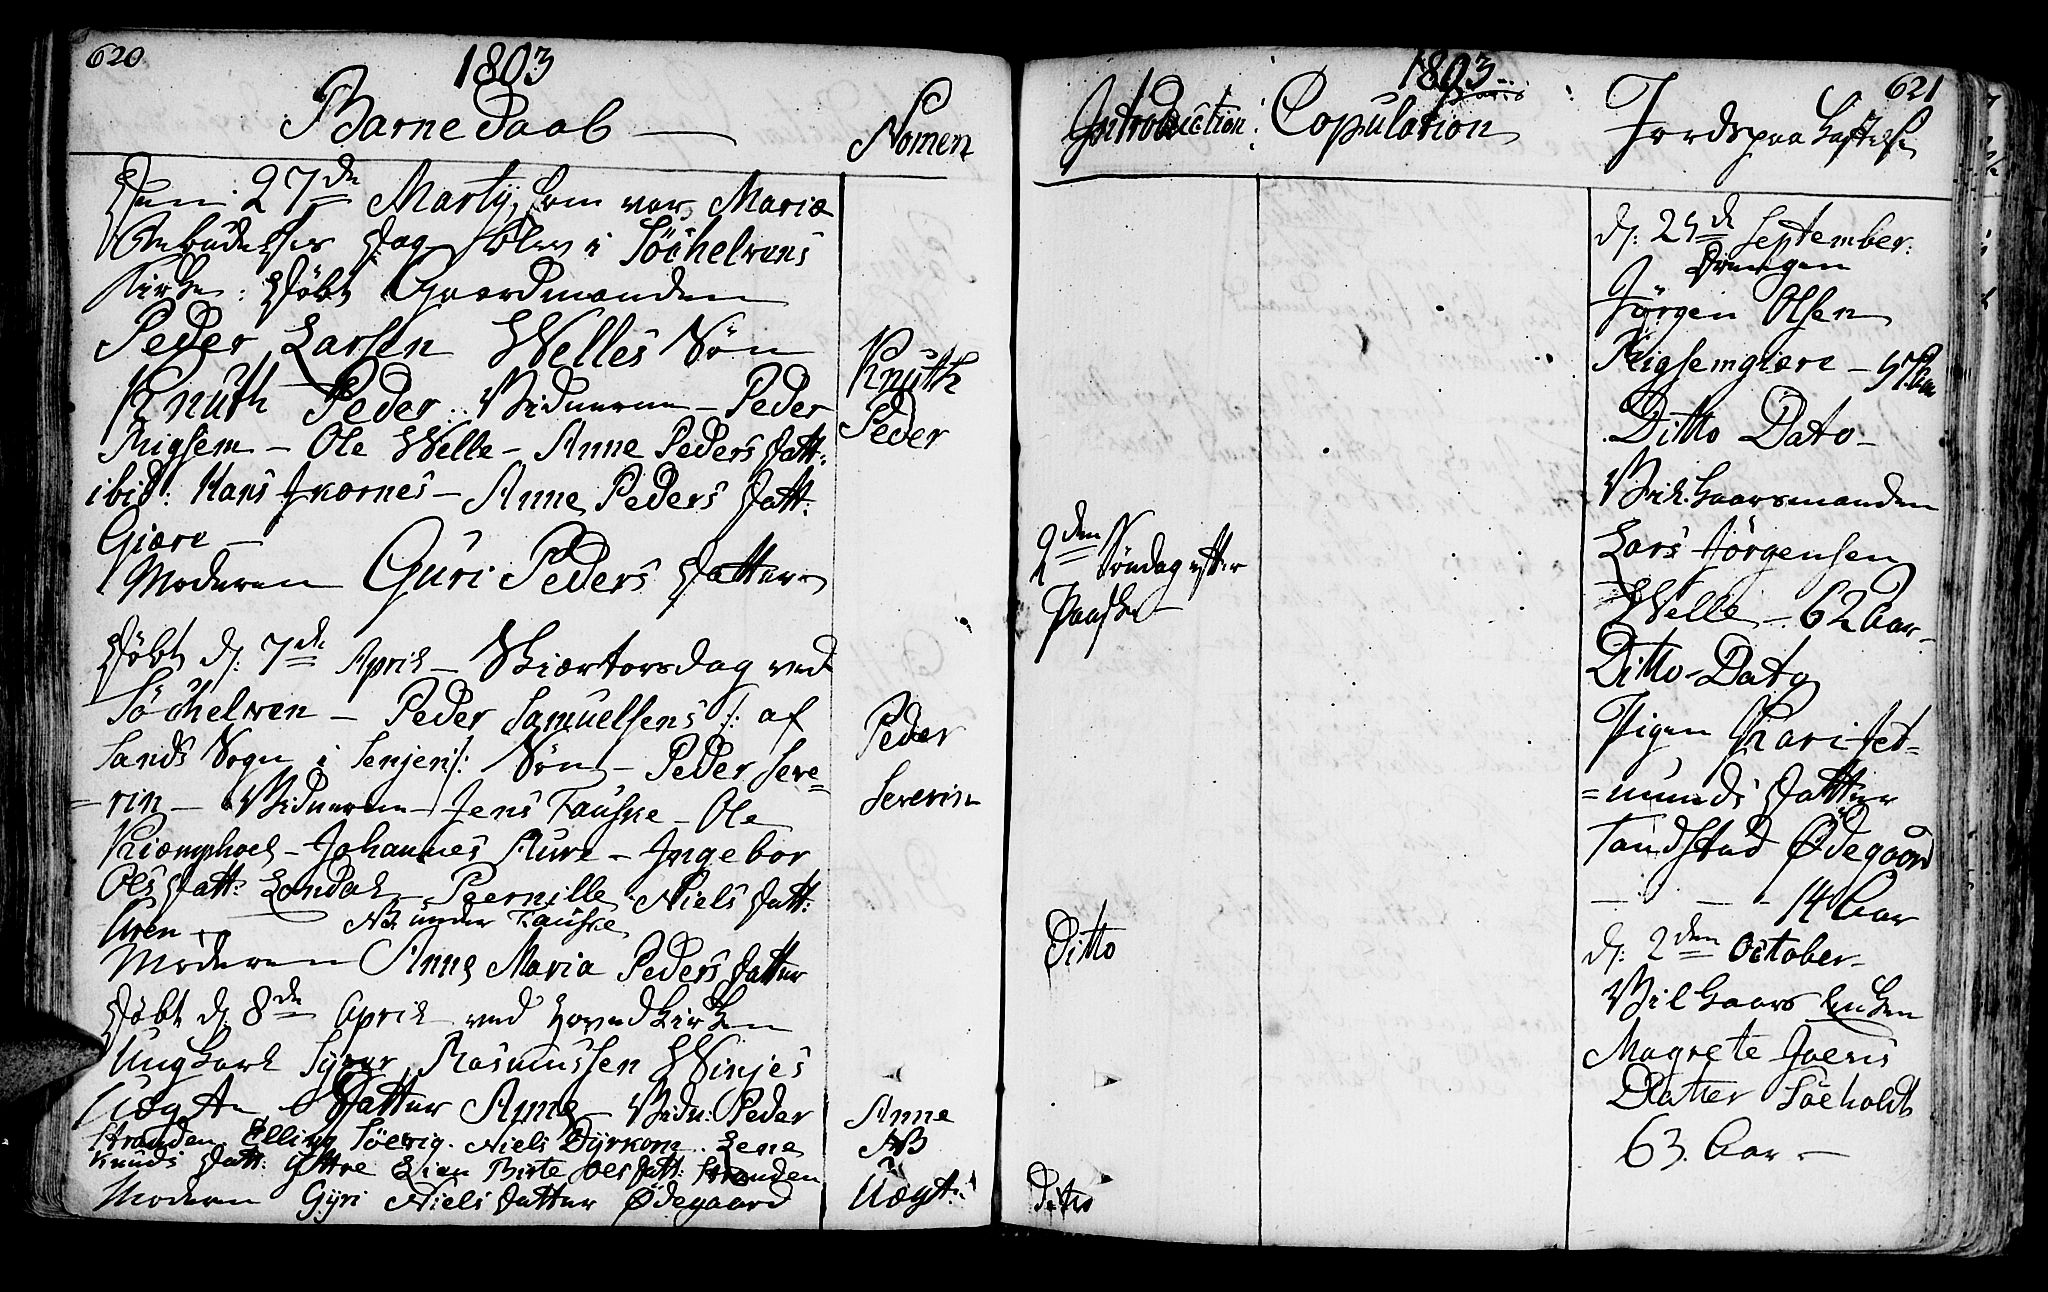 620
1803
Barne Daab —
Nomen
Den 27de Martÿ, som var Mariæ
Bebudelses Dag blev i Söchelvens
Kirke: Döbt Gaardmanden
Peder Larsen Welles Sön
Knuth Peder. Vidnerne – Peder
Rigsem – Ole Welle – Anne Peders Datt:
ibid: Hans Gjærnes – Anne Peders Datt:
Giære –
Moderen Guri Peders Datter
Knuth
Peder
Döbt d: 7de April – Skiærtorsdag ved
Söchelven – Peder Samuelsens /: af
Sands Sogn i Senjen :/ Sön – Peder Seve=
=rin – Vidnerne – Jens Fauske – Ole
Kiæmphoel – Johannes Aure – Ingebor
Ols Datt: Londal – Pernille Niels Datt:
Uren –
NB under Fauske
Moderen Anne Maria Peders Datter
Peder
Severin
Döbt d: 8de April ved Hovedkirken
Ungkarl Syver Rasmussen Winjes
Uægte Datter Anne – Vidn: Peder
Stranden. Elling Söevig. Niels Dyrkorn. Lene
Knuds Datt: Yttre Lian Birte Ols Datt: Stranden
Moderen Gÿri Niels Datter Ödegaard
Anne
NB
Uægte
1803
621
Introduction: Copulation Jordspaa Kastelse
2den Söndag efter
Paaske
Ditto
Ditto
d: 25de September.
Drengen
Jörgen Olsen
Rigsemgiære –
Ditto Dato –
Vilkaarsmanden
Lars Jörgensen
Welle – 62 Aar –
Ditto Dato
Pigen Kari
=munds Datter
Tandstad Ödegaard
– – – 14 Aar
d: 2den October –
Vilkaars Enken
Magrete Joens
Datter Söeholdt
63. Aar –